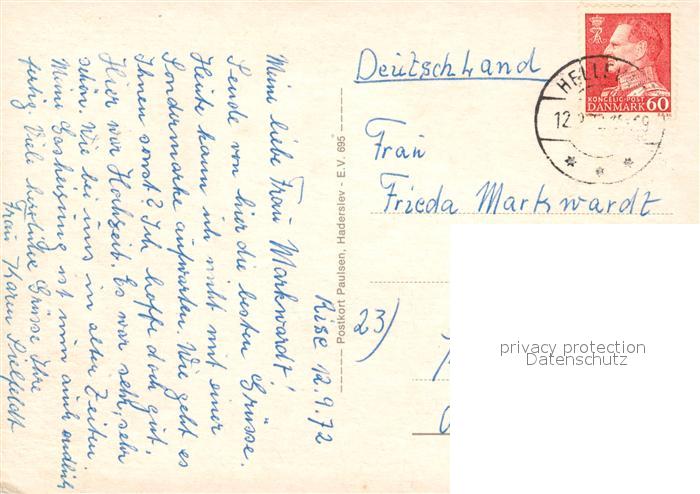 Rise 12.9.72
Meine liebe Frau Markwardt!
Sende von hier die besten Grüsse.
Heute kann ich nicht mit einer
Sondermarke aufwarten. Wie geht es
Ihnen sonst? Ich hoffe doch gut.
Hier war Hochzeit. Es war sehr, sehr
schön. Wie bei uns in alten Zeiten
Meine Gasheizung ist nun auch endlich
fertig. Viele herzliche Grüsse Ihre
Frau Karen
Postkort Paulsen, Haderslev - E.V. 695
Deutschland
KONGELIG POST
DANMARK 60
HELLE
12.9
Frau
Frieda Markwardt
23)
privacy protection
Datenschutz